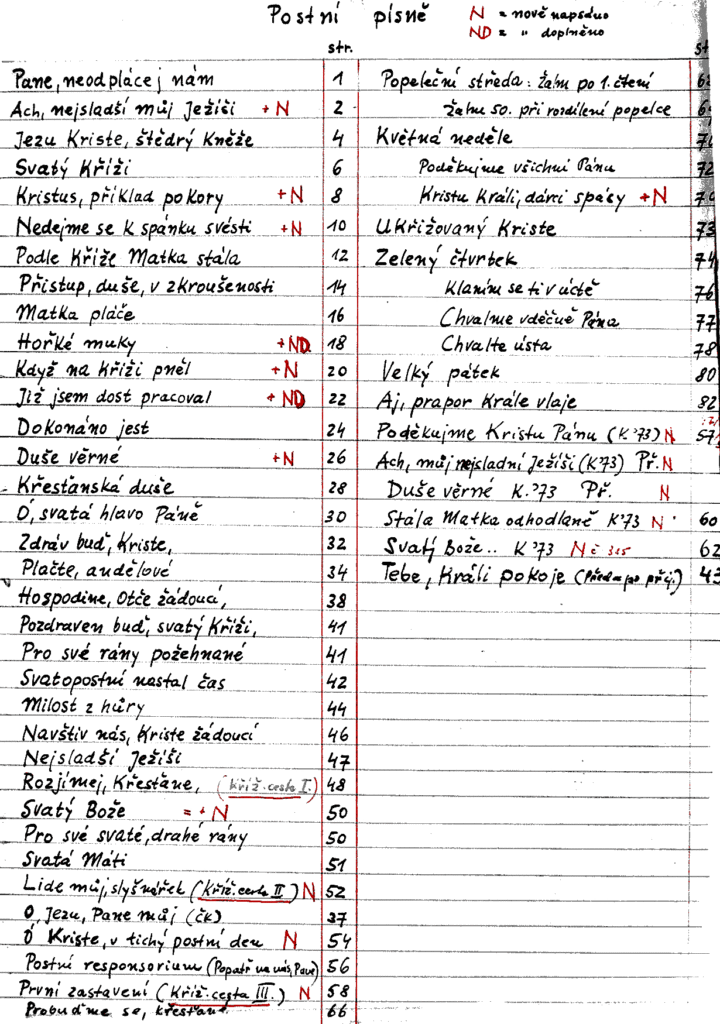 Postní písně N = nově napsáno
ND = " doplněno
str.
Pane, neodplácej nám 1
Ach, nejsladší můj Ježíši + N 2
Jezu Kriste, štědrý Kněže 4
Svatý Kříži 6
Kristus, příklad pokory + N 8
Nedejme se k spánku svésti + N 10
Podle Kříže Matka stála 12
Přistup, duše, v zkroušenosti 14
Matka pláče 16
Hořké muky + ND 18
Když na kříži pněl + N 20
Již jsem dost pracoval + ND 22
Dokonáno jest 24
Duše věrné + N 26
Křesťanská duše 28
Ó, svatá hlavo Páně 30
Zdráv buď, Kriste, 32
Plačte, andělové 34
Hospodine, Otče žádoucí, 38
Pozdraven buď, svatý Kříži, 41
Pro své rány požehnané 41
Svatopostní nastal čas 42
Milost z hůry 44
Navštiv nás, Kriste žádoucí 46
Nejsladší Ježíši 47
Rozjímej, Křesťane, (kříž. cesta I.) 48
Svatý Bože = + N 50
Pro své svaté, drahé rány 50
Svatá Máti 51
Lide můj, slyš nářek (Kříž. cesta II) N 52
O, Jezu, Pane můj (ČK) 37
Ó Kriste, v tichý postní den N 54
Postní responsorium (Popatř na nás, Pane) 56
První zastavení (Kříž. cesta III.) N 58
Probuďme se, křesťané 66
Popeleční středa: Žalm po 1. čtení
Žalm 50. při rozdílení popelce
Květná neděle
Poděkujme všichni Pánu 72
Kristu Králi, dárci spásy + N
Ukřižovaný Kriste 73
Zelený čtvrtek 74
Klaním se ti v úctě 76
Chvalme vděčně Pána 77
Chvalte ústa 78
Velký pátek 80
Aj, prapor Krále vlaje 82
Poděkujme Kristu Pánu (K'73) N 57
Ach, můj nejsladní Ježíši (K'73) Př. N
Duše věrné K.'73 Př. N
Stála Matka odhodlaně K'73 N 60
Svatý Bože.. K'73 N č 315 62
Tebe, Králi pokoje (Před a po přij.) 43